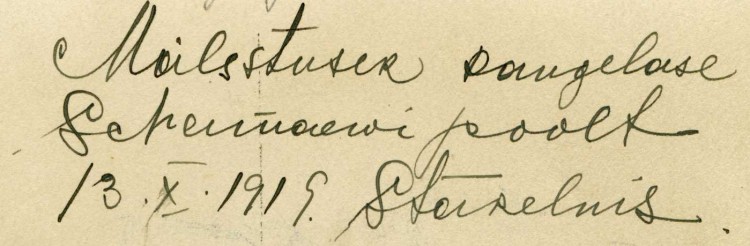 Mälestusek kangelase
Schermaewi poolt
13.X.1919. Stakelnis.